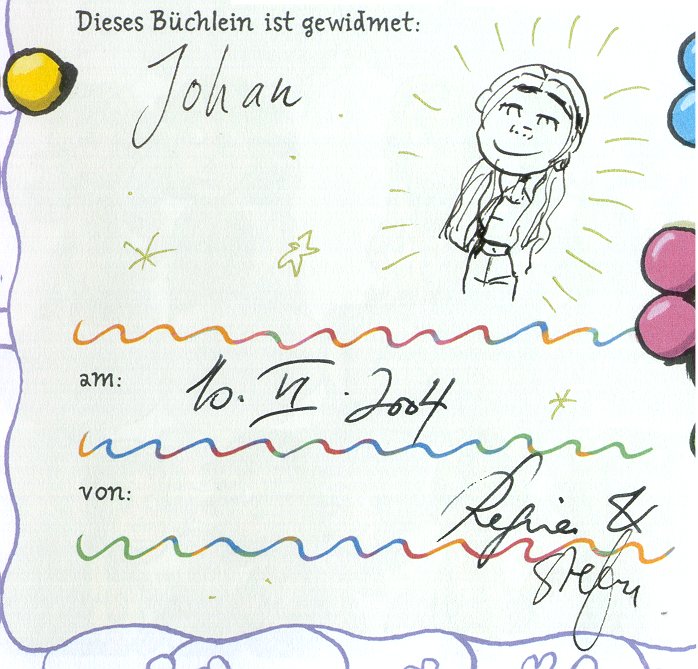 Dieses Büchlein ist gewidmet:
Johan
am: 10. VI. 2004
von:
&
Stefan